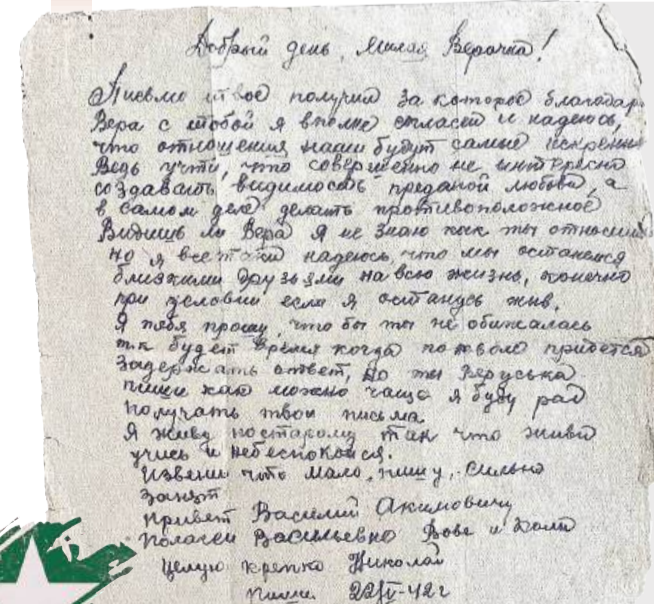 Добрый день, милая Верочка!
Письмо твое получил за которое благодар
Вера с тобой я вполне согласен и надеюсь,
что отношения наши будут самые искренн
Ведь учти, что совершенно не интересно
создавать видимость преданой любви, а
в самом деле делать противоположное
Видишь ли Вера я не знаю как ты относишь
но я всетаки надеюсь, что мы останемся
близкими друзьями на всю жизнь, конечно
при условии если я останусь жив.
Я тебя прошу, что бы ты не обижалась
т.к будет время когда поневоле придется
задержать ответ, но ты Веруська
пиши как можно чаще я буду рад
получать твои письма
Я живу постарому так что живи
учись и небеспокойся.
Извени что мало пишу, сильно
занят
Привет Василий Акимовичу
Васильевне Вове и Коли
Целую крепко Николай
пиши 22/-42г